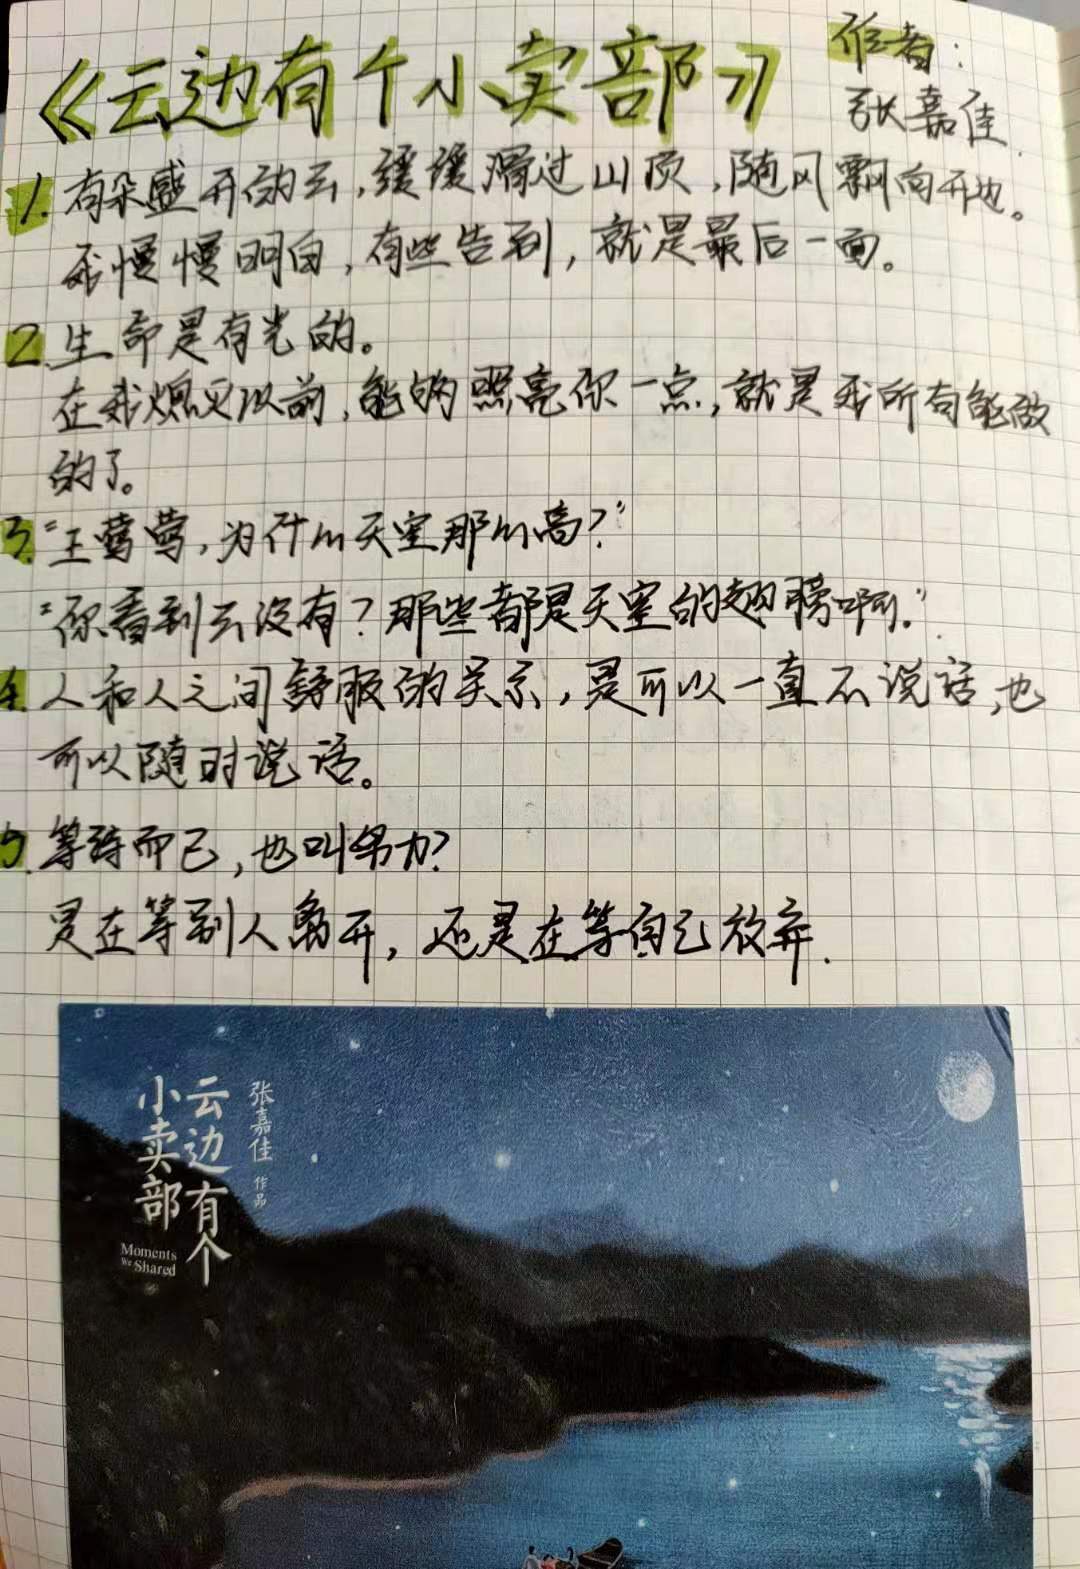 《云边有个小卖部》
作者：
张嘉佳
1. 有朵盛开的云，缓缓滑过山顶，随风飘向天边。
我慢慢明白，有些告别，就是最后一面。
2. 生命是有光的。
在我熄灭以前，能够照亮你一点，就是我所有能做
的了。
3. “王莺莺，为什么天空那么高？”
“你看到云没有？那些都是天空的翅膀啊。”
4. 人和人之间舒服的关系，是可以一直不说话，也
可以随时说话。
5. 等待而已，也叫努力？
是在等别人离开，还是在等自己放弃.
云边有个
小卖部
张嘉佳 作品
Moments
We Shared